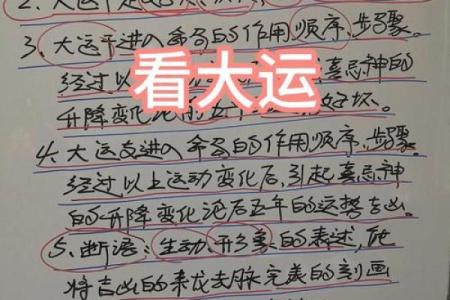 2、大运
3、大运干进入命局的作用顺序、步骤。
看大运
经过以 喜忌神的
升降变化论前五 好坏。
4、大运支进入命局的作用顺序、步骤。
经过以上运动变化后,引起喜忌神
的升降变化论后五年的运势吉凶。
5、断语:生动、形象的表述,他
将吉凶的来龙去脉完美的刻画